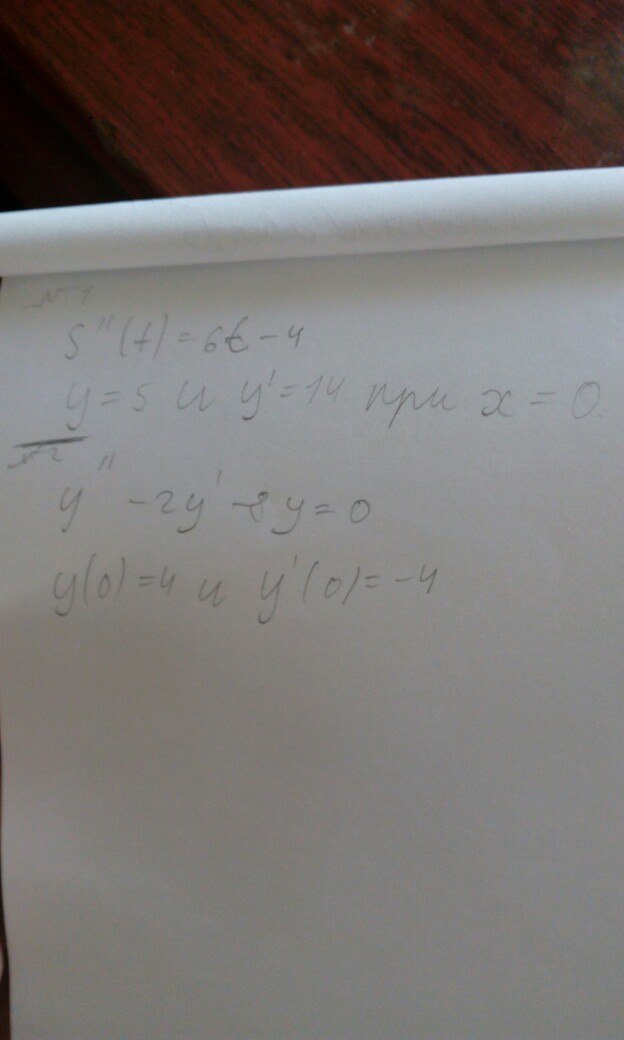 №1
S''(t)=6t-4
y=5 и y'=14 при x=0.
№2
y''-2y'-8y=0
y(0)=4 и y'(0)=-4